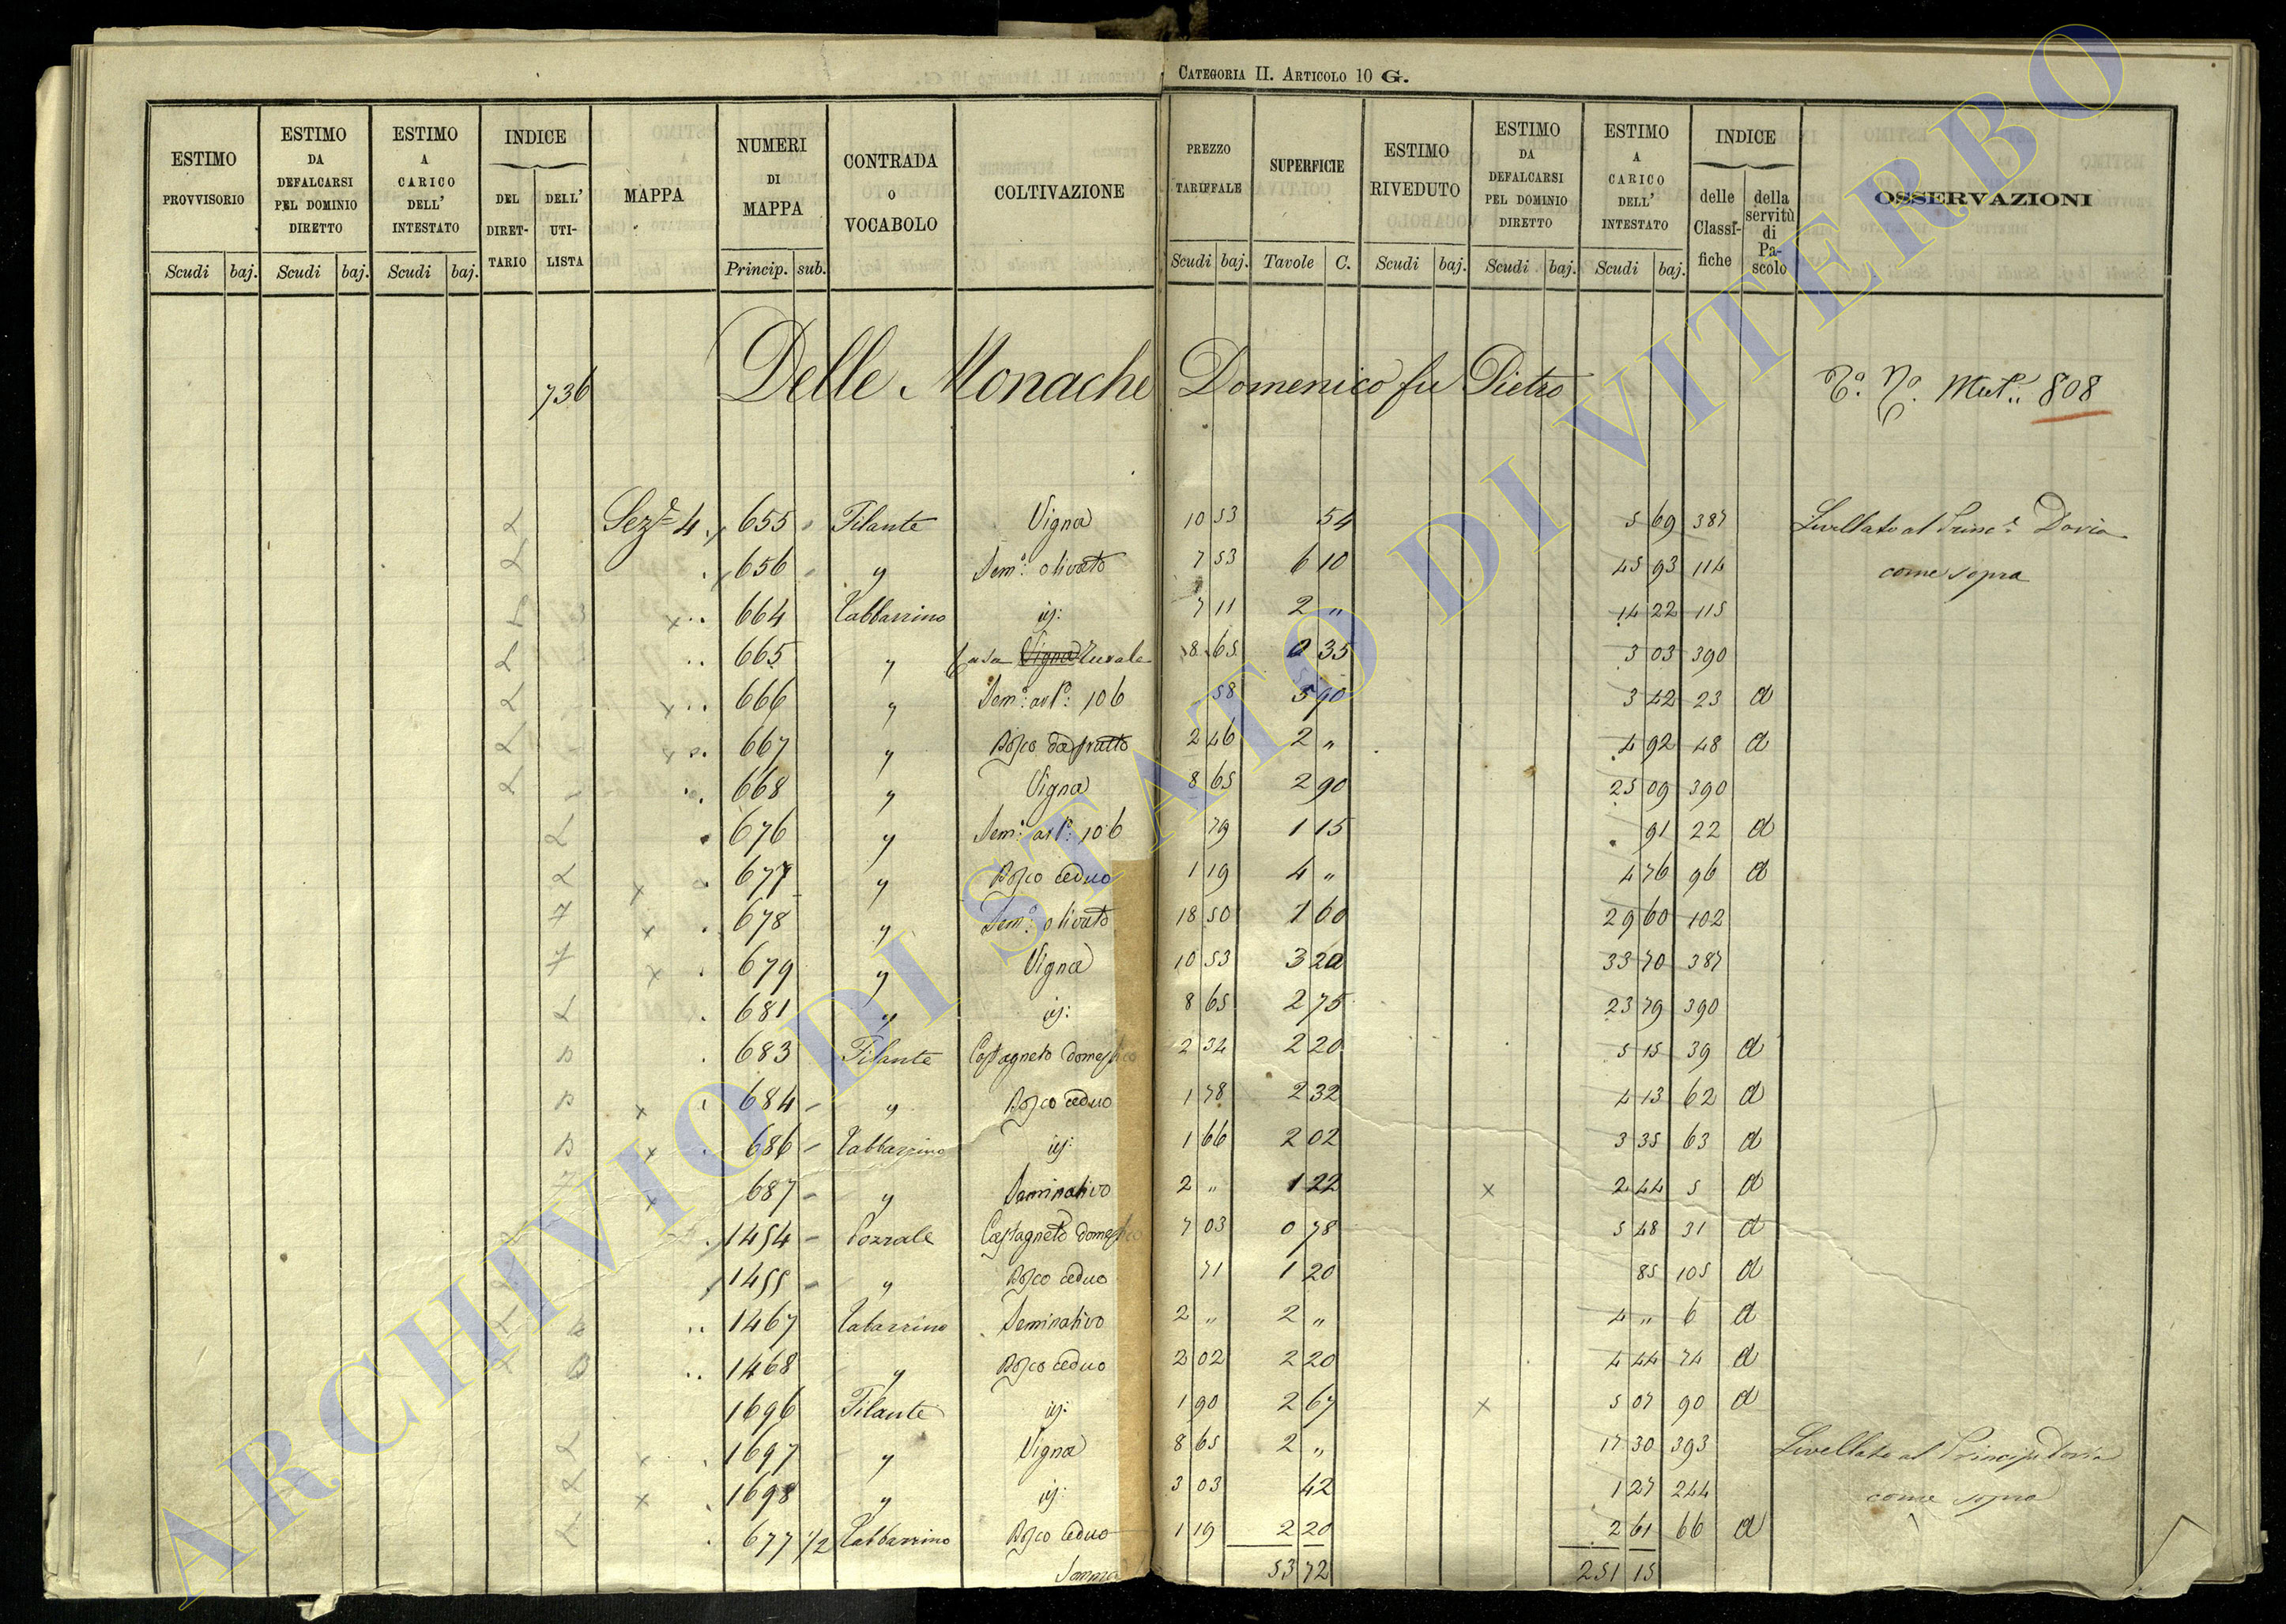 CATEGORIA II. ARTICOLO 10 G.
ESTIMO PROVVISORIO
ESTIMO DA DEFALCARSI PEL DOMINIO DIRETTO
ESTIMO A CARICO DELL' INTESTATO
INDICE
DEL DIRETTARIO
DELL' UTILISTA
MAPPA
NUMERI DI MAPPA
CONTRADA O VOCABOLO
COLTIVAZIONE
PREZZO TARIFFALE
SUPERFICIE
ESTIMO RIVEDUTO
ESTIMO DA DEFALCARSI PEL DOMINIO DIRETTO
ESTIMO A CARICO DELL' INTESTATO
INDICE
delle Classifiche
della servitù di Pascolo
OSSERVAZIONI
Scudi baj. Scudi baj. Scudi baj. Princip. sub. Scudi baj. Tavole C. Scudi baj. Scudi baj. Scudi baj.
736 Delle Monache Domenico fu Pietro Mut. 808
Sez.e 4 655 Filante Vigna 10 53 54 5 69 387 Livellato al Princ.e Doria
656 " Sem.o olivato 7 53 6 10 45 93 114 come sopra
664 Tabbarrino id: 7 11 2 " 14 22 115
665 " Casa Vigna Rurale 8 65 0 35 3 03 390
666 " 106 58 5 90 3 42 23 d
667 " Bosco da frutto 2 46 2 " 4 92 48 d
668 " Vigna 8 65 2 90 25 09 390
676 " 106 79 1 15 91 22 d
677 " Bosco ceduo 1 19 4 " 4 76 96 d
678 " Sem.o olivato 18 50 1 60 29 60 102
679 " Vigna 10 53 3 20 33 70 387
681 " id: 8 65 2 75 23 79 390
683 Filante Castagneto domestico 2 34 2 20 5 15 39 d
684 " Bosco ceduo 1 78 2 32 4 13 62 d
686 Tabbarrino id: 1 66 2 02 3 35 63 d
687 " Seminativo 2 " 1 22 2 44 5 d
1454 Pozzale Castagneto domestico 7 03 0 78 5 48 31 d
1455 " Bosco ceduo 71 1 20 85 105 d
1467 Tabarrino Seminativo 2 " 2 " 4 " 6 d
1468 " Bosco ceduo 2 02 2 20 4 44 74 d
1696 Filante id: 1 90 2 67 5 07 90 d
1697 " Vigna 8 65 2 " 17 30 393 Livellato al Principe Doria
1698 " id: 3 03 42 1 27 244 come sopra
677 1/2 Tabbarrino Bosco ceduo 1 19 2 20 2 61 66 d
Somma 53 72 251 15
ARCHIVIO DI STATO DI VITERBO